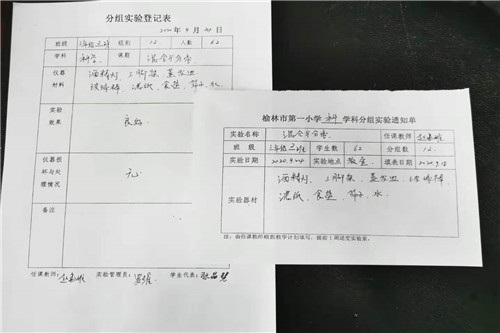 分组实验登记表
2020年9月24日
班级 三年级三班 组别 12 人数 62
学科 科学 课题 混合与分离
仪器材料 酒精灯、三脚架、蒸发皿
玻璃棒、滤纸、食盐、筛子、水
实验效果 良好
仪器损坏与处理情况 无
备注
任课教师: 实验管理员: 学生代表:
榆林市第一小学 科 学科分组实验通知单
实验名称 混合与分离 任课教师
班级 三年级三班 学生数 62 分组数 12
实验日期 2020.9.24 实验地点 教室 填表日期 2020.9.18
实验器材 酒精灯、三脚架、蒸发皿、玻璃棒
滤纸、食盐、筛子、水
注:由任课教师根据教学计划填写,提前1周送至实验室。